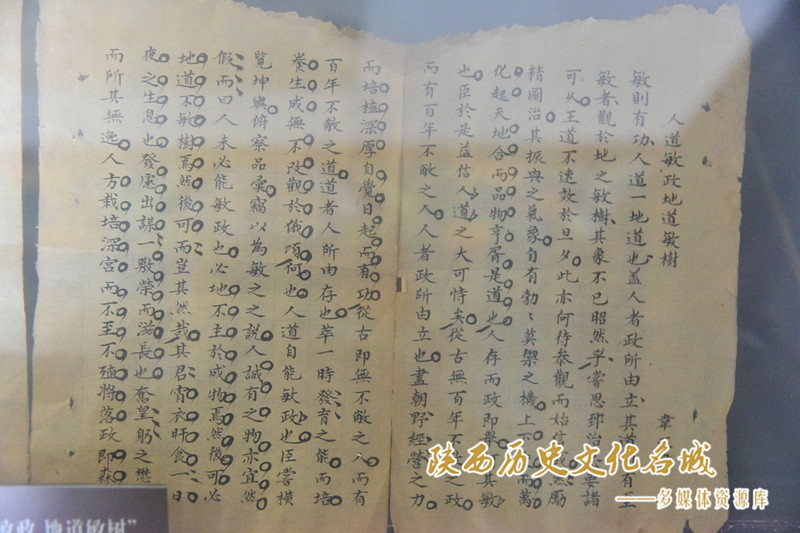 人道敏政地道敏樹
章
敏則有功人道一地道也蓋人者政所由立其道有主
敏者觀於地之敏樹其象不已昭然乎嘗思郅治要諸
可久王道不速效於旦夕此亦何待參觀而始然勵
精圖治其振興之氣象自有勃〻莫禦之機上下而萬
化起天地合而品物亨胥是道也人存而政即舉其敏
也臣於是益信人道之大可恃矣從古無百年不敝之政
而有百年不敝之人人者政所由立也晝朝野經營之力
而培植深厚自覺日起而有功從古即無不敝之人而有
百年不敝之道道者人所由存也萃一時發育之能而培
養生成無不改觀於俄頃何也人道自能敏政也臣嘗橫
覽坤輿俯察品彙竊以為敏之之說人誠有之物亦宜然
假而曰人未必能敏政也必地不主於成物焉然後可必
地道不敏樹焉然後可而豈其然哉其君宵衣旰食一日
夜之生息也發慮出謀一敷榮而滋長也奮皇躬之懋
而所其無逸人方栽培深宮而不至不殖將落政即森
敏政 地道敏树”
陕西历史文化名城
——多媒体资源库